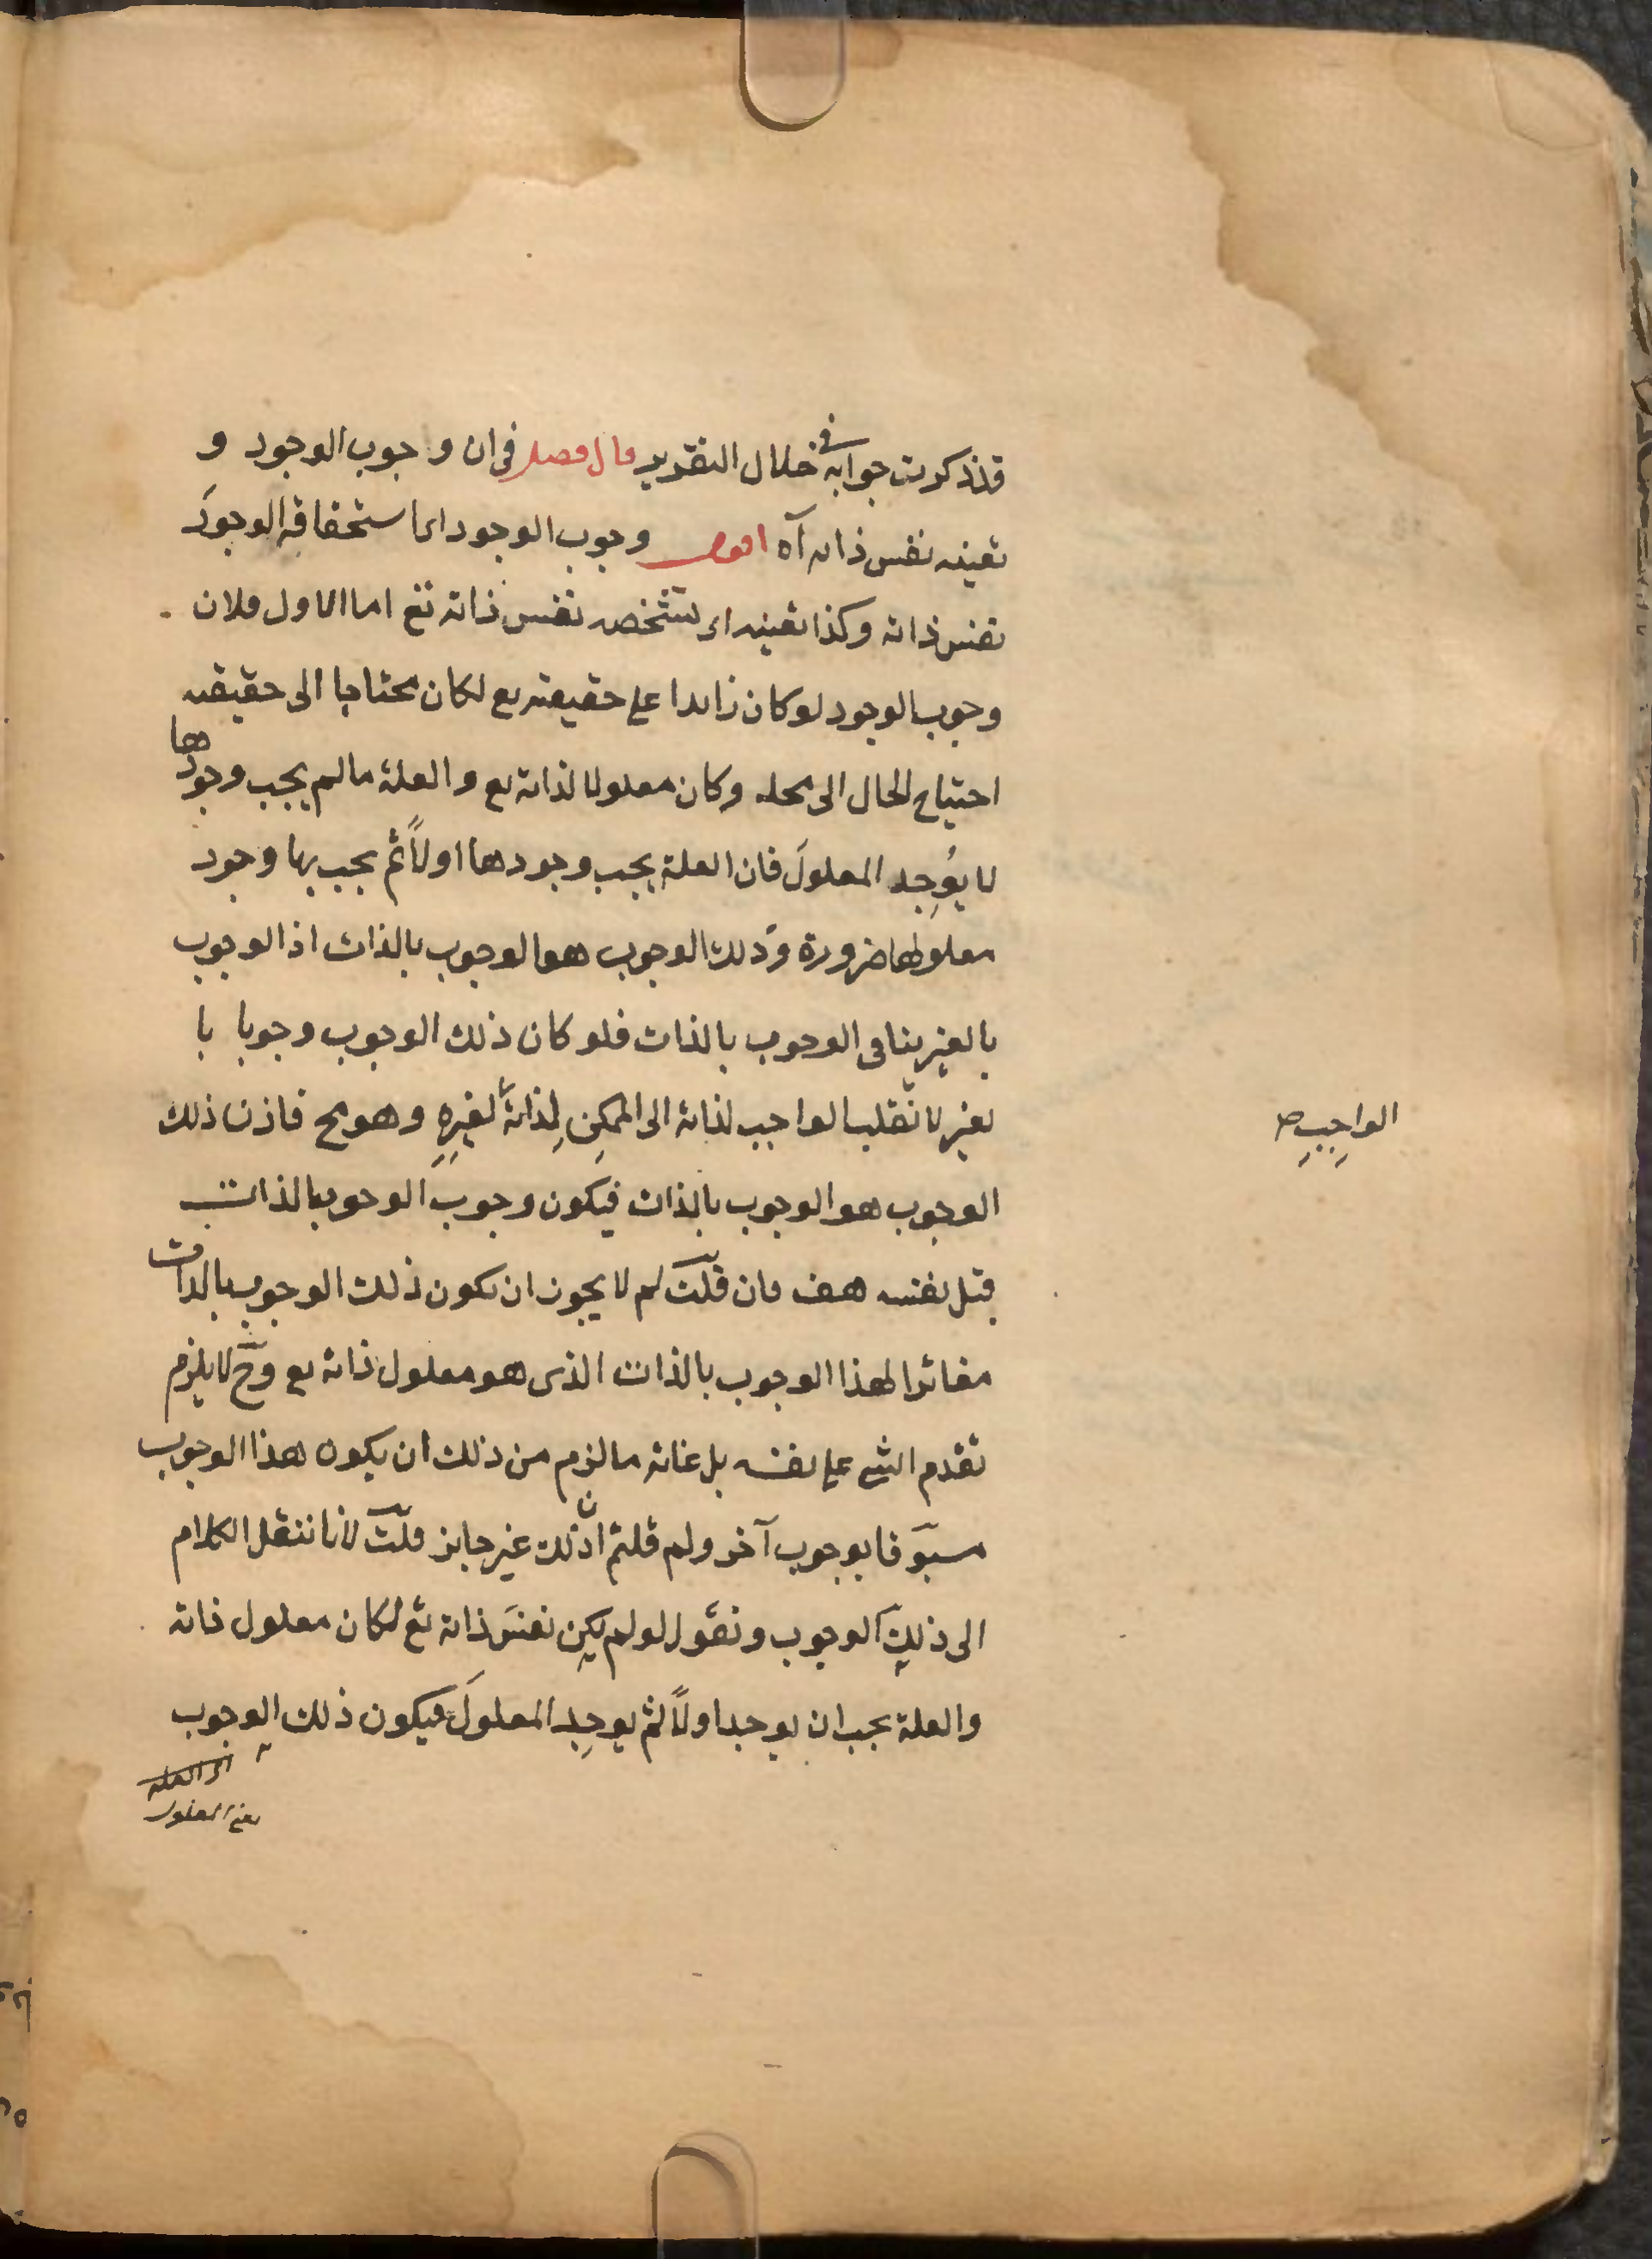 قد ذكرت جوابه في خلال التقرير قال فصل في ان وجوب الوجود و
تعينه نفس ذاته آه اقول وجوب الوجود اى استحقاقه الوجودَ
نفس ذاته وكذا تعينه اى تشخصه نفس ذاته تع اما الاول فلان
وجوب الوجود لو كان زايدا على حقيقته تع لكان محتاجا الى حقيقته
احتياج الحال الى محله وكان معلولا لذاته تع والعلة ما لم يجب وجودها
لا يُوجِد المعلولَ فان العلة يجب وجودها اولاً ثم يجب بها وجود
معلولها ضرورة وذلك الوجوب هو الوجوب بالذات اذ الوجوب
بالغير ينافى الوجوب بالذات فلو كان ذلك الوجوب وجوبا با
لغير لانقلب الواجب لذاته الى الممكنِ لِذاته لغيرِهِ وهو مح فاذن ذلك
الواجِبِ صح
الوجوب هو الوجوب بالذات فيكون وجوبَ الوجوب بالذات
قبل نفسه هف فان قلتَ لم لا يجوز ان يكون ذلك الوجوب بالذات
مغائرا لهذا الوجوب بالذات الذى هو معلول ذاته تع وح لا يلزم
تقدم الشئ على نفسه بل غاته ما لزم من ذلك ان يكون هذا الوجوب
مسبوقا بوجوب آخر ولم قلتم ان ذلك غير جايز قلت لانا ننقل الكلام
الى ذلك الوجوب ونقول لو لم يكن نفسَ ذاته تع لكان معلول ذاته
والعلة يجب ان يوجد اولاً ثم يوجِد المعلولَ فيكون ذلك الوجوب